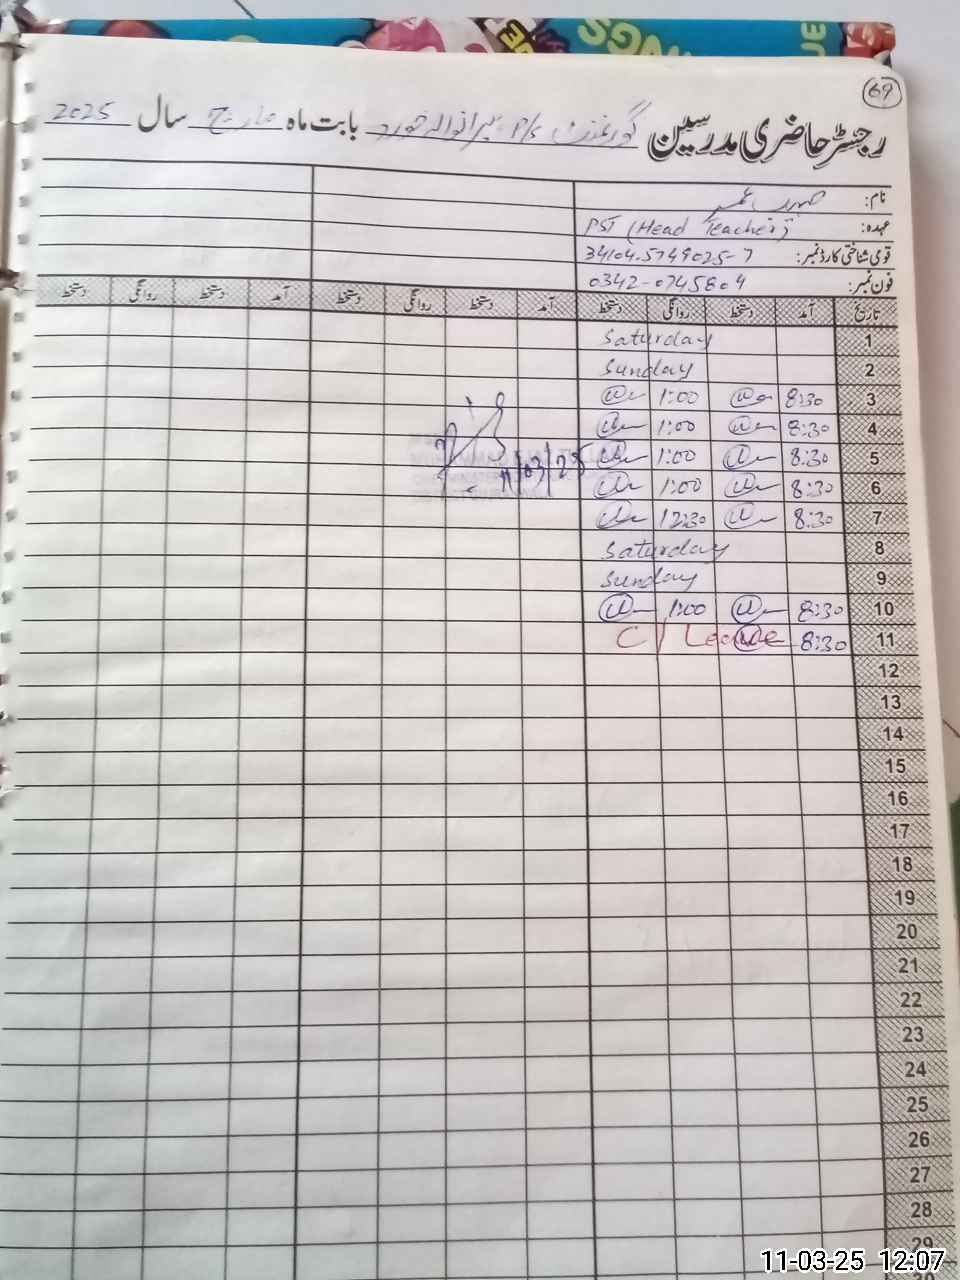 69
رجسٹر حاضری مدرسین گورنمنٹ P/S بابت ماہ مارچ سال 2025
نام:
عہدہ: PST (Head Teacher)
قومی شناختی کارڈ نمبر: 34104-5749025-7
فون نمبر: 0342-0745804
تاریخ آمد دستخط روانگی دستخط آمد دستخط روانگی دستخط آمد دستخط روانگی دستخط
1 Saturday
2 Sunday
3 8:30 1:00
4 8:30 1:00
5 8:30 1:00
6 8:30 1:00
7 8:30 12:30
8 Saturday
9 Sunday
10 8:30 1:00
11 8:30 C/Leave
11/03/25
12
13
14
15
16
17
18
19
20
21
22
23
24
25
26
27
28
29
11-03-25 12:07